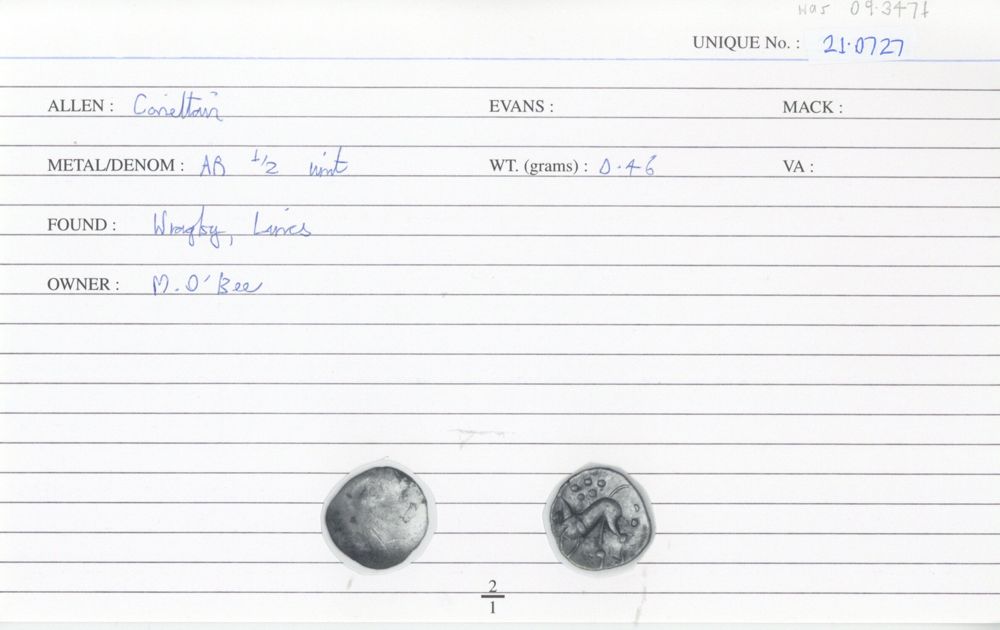 was 09.3471
UNIQUE No. : 21.0727
ALLEN : Corieltavi EVANS : MACK :
METAL/DENOM : AR 1/2 unit WT. (grams) : 0.46 VA :
FOUND : Wragby, Lincs
OWNER : M. O'Bee
2
1